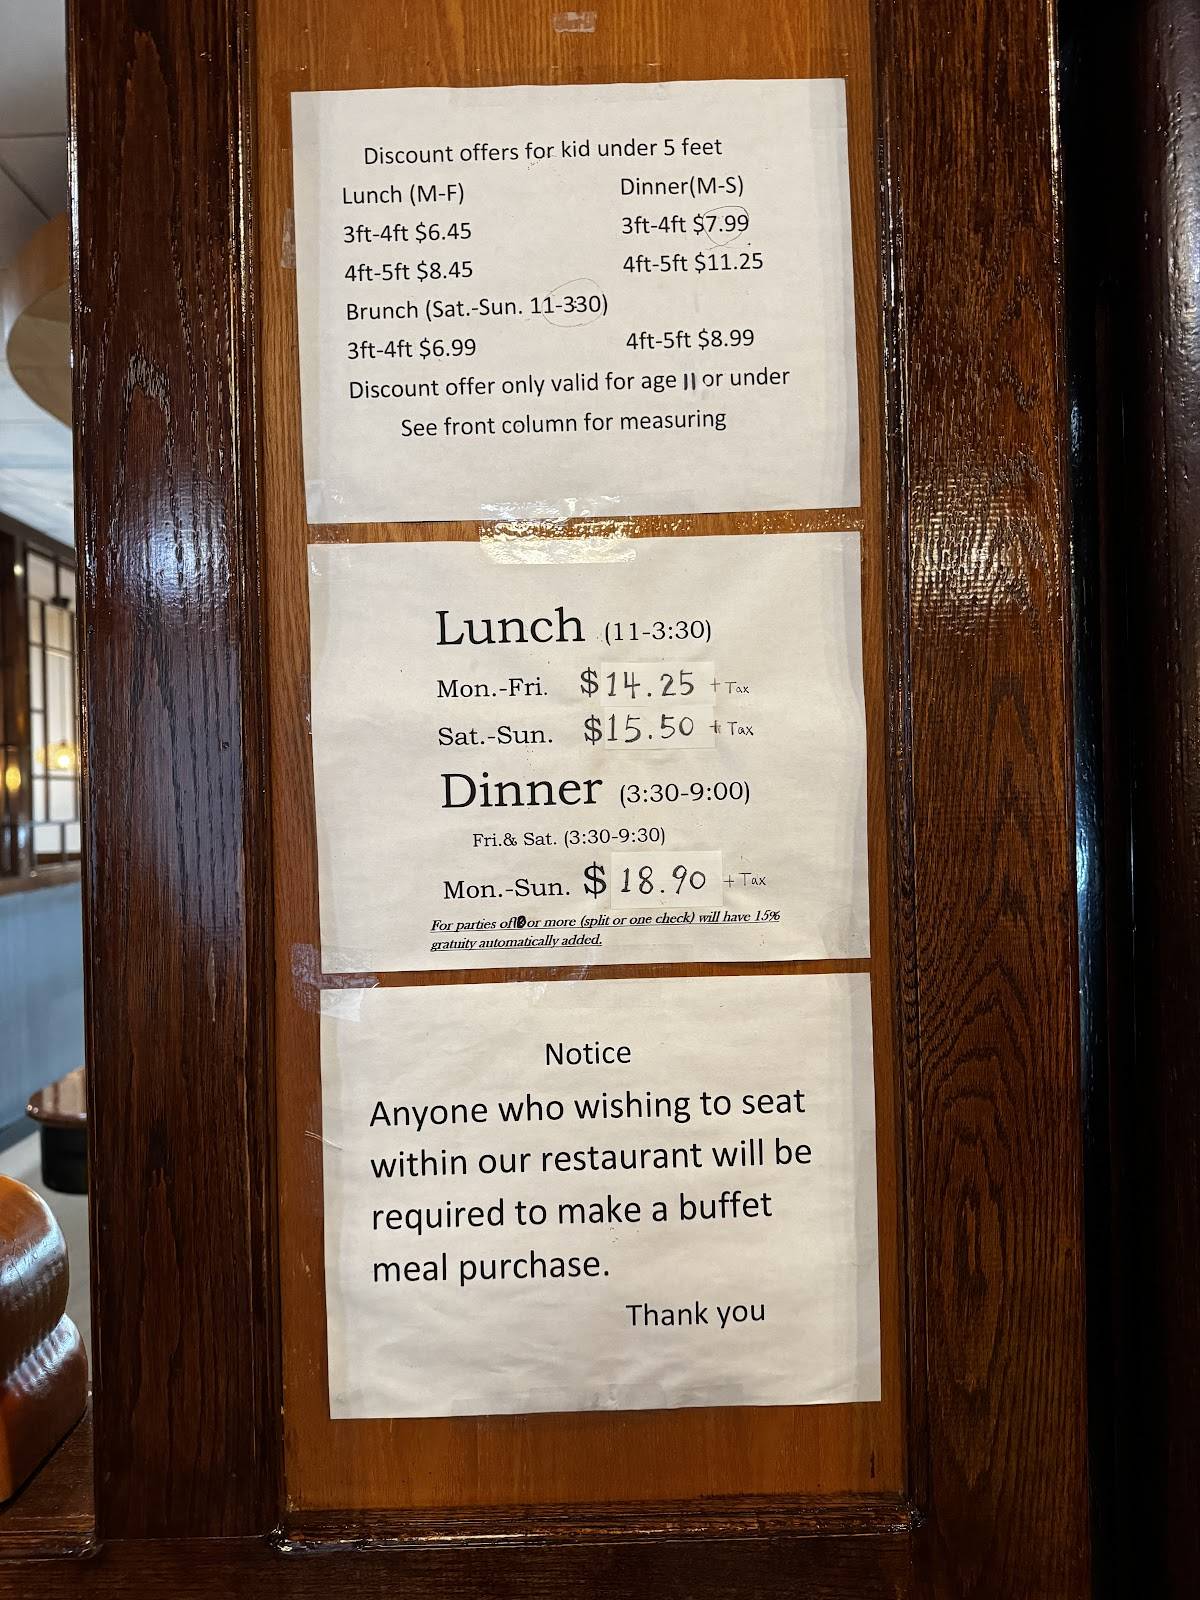 Discount offers for kid under 5 feet
Lunch (M-F) Dinner(M-S)
3ft-4ft $6.45 3ft-4ft $7.99
4ft-5ft $8.45 4ft-5ft $11.25
Brunch (Sat.-Sun. 11-330)
3ft-4ft $6.99 4ft-5ft $8.99
Discount offer only valid for age 11 or under
See front column for measuring
Lunch (11-3:30)
Mon.-Fri. $14.25 + Tax
Sat.-Sun. $15.50 + Tax
Dinner (3:30-9:00)
Fri.& Sat. (3:30-9:30)
Mon.-Sun. $18.90 + Tax
For parties of or more (split or one check) will have 15%
gratuity automatically added.
Notice
Anyone who wishing to seat
within our restaurant will be
required to make a buffet
meal purchase.
Thank you